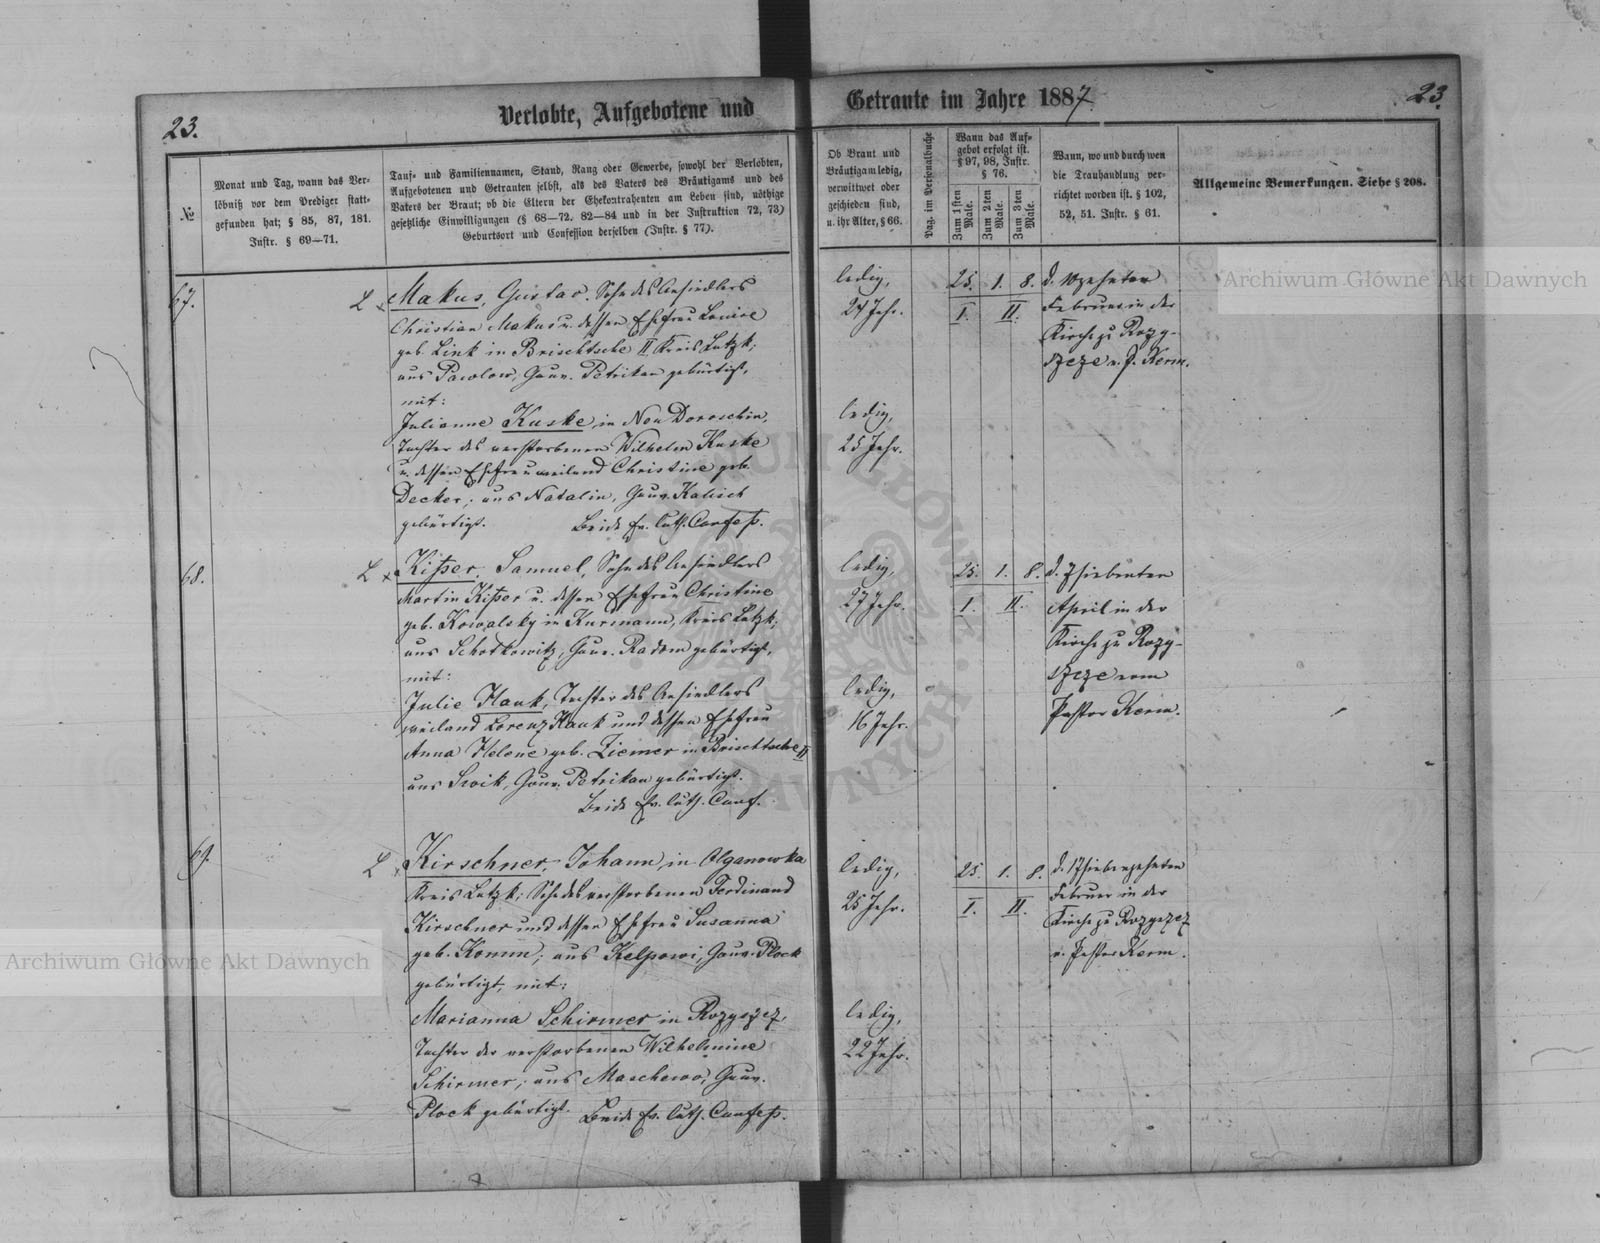 23.
Verlobte, Aufgebotene und
Getraute im Jahre 1887.
23.
№
Monat und Tag, wann das Ver-
löbniß vor dem Prediger statt-
gefunden hat; § 85, 87, 181.
Instr. § 69—71.
Tauf- und Familiennamen, Stand, Rang oder Gewerbe, sowohl der Verlobten,
Aufgebotenen und Getrauten selbst, als des Vaters des Bräutigams und des
Vaters der Braut; ob die Eltern der Ehekontrahenten am Leben sind, nöthige
gesetzliche Einwilligungen (§ 68—72. 82—84 und in der Instruktion 72, 73)
Geburtsort und Confession derselben (Instr. § 77).
Ob Braut und
Bräutigam ledig,
verwittwet oder
geschieden sind,
u. ihr Alter, § 66.
Pag. im Personalbuche
Wann das Auf-
gebot erfolgt ist.
§ 97, 98, Instr.
§ 76.
Zum 1sten
Male.
Zum 2ten
Male.
Zum 3ten
Male.
Wann, wo und durch wen
die Trauhandlung ver-
richtet worden ist. § 102,
52, 51. Instr. § 61.
Allgemeine Bemerkungen. Siehe § 208.
67.
L x Makus, Gustav. Sohn des Ansiedlers
Christian Makus u. dessen Ehefrau Louise
geb. Link in Brischtsche II Kreis Lutzk;
aus Pawlow, Gouv. Petrikau gebürtigt,
mit:
Julianne Kuske, in Neu Doroschin,
Tochter des verstorbenen Wilhelm Kuske
u. dessen Ehefrau weiland Christine geb.
Decker; aus Natalin, Gouv. Kalisch
gebürtigt. Beide Ev. Luth. Confess.
ledig,
24 Jahr.
ledig,
25 Jahr.
25. 1. 8.
I. II.
d. 10 zehnten
Februar in der
Kirche zu Rozy-
szcze v. P. Kerm.
68.
L x Kisser, Samuel, Sohn des Ansiedlers
Martin Kisser u. dessen Ehefrau Christine
geb. Kowalsky in Kurmann, Kreis Lutzk;
aus Schotkowitz, Gouv. Radom gebürtigt,
mit:
Julie Hauk, Tochter des Ansiedlers
weiland Lorenz Hauk und dessen Ehefrau
Anna Helene geb. Ziemer in Brischtsche II
aus Swik, Gouv. Petrikau gebürtigt.
Beide Ev. Luth. Conf.
ledig,
27 Jahr.
ledig,
16 Jahr.
25. 1. 8.
I. II.
d. 7 siebenten
April in der
Kirche zu Rozy-
szcze vom
Pastor Kerm.
69.
L x Kirschner, Johann, in Olganowka
Kreis Lutzk; Sohn des verstorbenen Ferdinand
Kirschner und dessen Ehefrau Susanna
geb. Komm; aus Kelpowi, Gouv. Plock
gebürtigt, mit:
Marianna Schirmer in Rozyszcz,
Tochter der verstorbenen Wilhelmine
Schirmer; aus Maschewo, Gouv.
Plock gebürtigt. Beide Ev. Luth. Confess.
ledig,
25 Jahr.
ledig,
22 Jahr.
25. 1. 8.
I. II.
d. 17 siebenzehnten
Februar in der
Kirche zu Rozyszcz
v. Pastor Kerm.
Archiwum Główne Akt Dawnych
Archiwum Główne Akt Dawnych